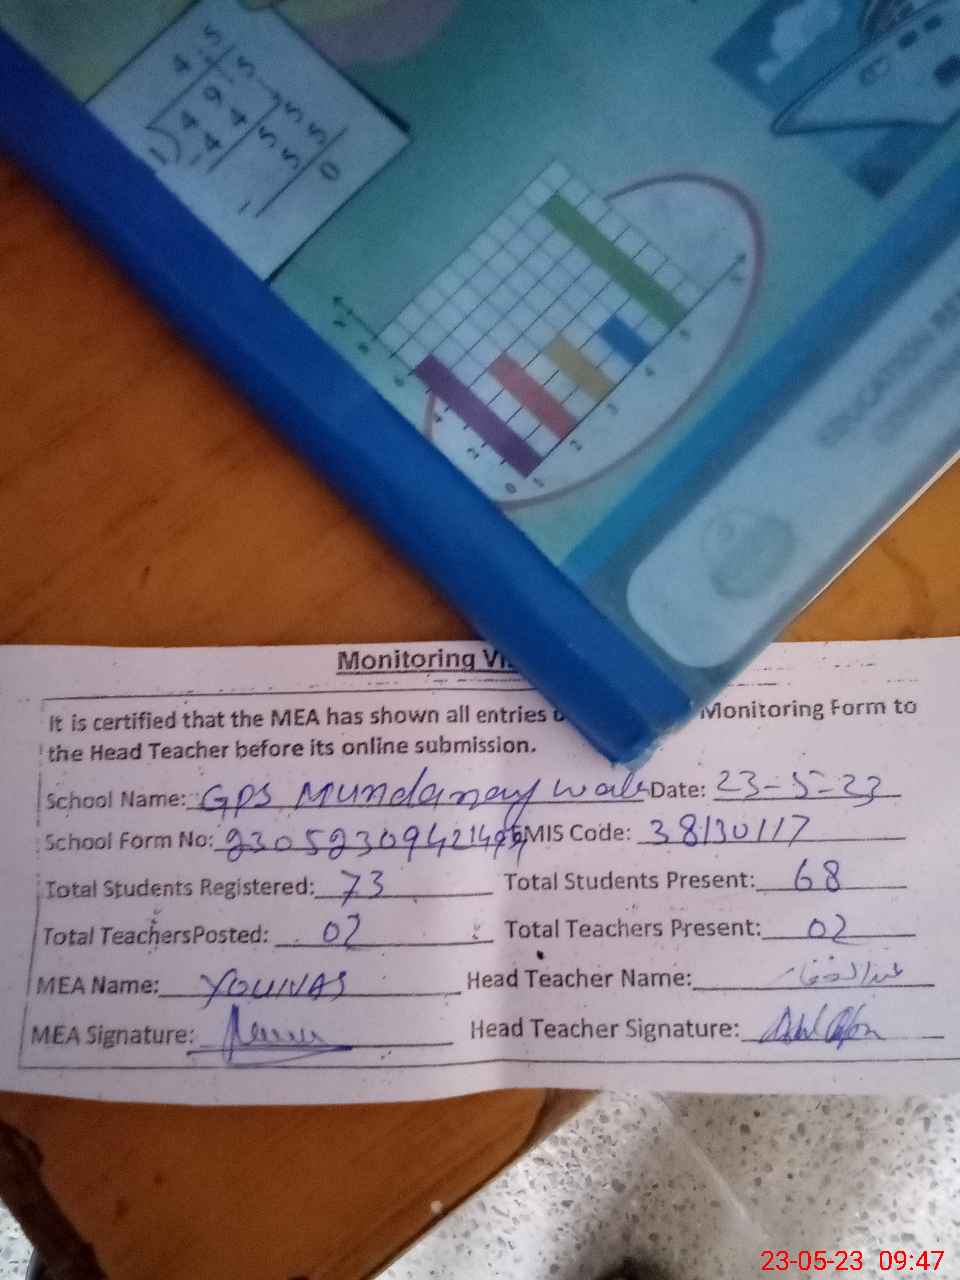 4 . 5
1 ) 4 9 . 5
- 4 4
5 5
5 5
0
8
6
4
2
0
1 2 3 4 5
EDUCATION
Monitoring
It is certified that the MEA has shown all entries Monitoring Form to
the Head Teacher before its online submission.
School Name: GPS Mundanay wala Date: 23-5-23
School Form No: EMIS Code: 38130117
Total Students Registered: 73 Total Students Present: 68
Total TeachersPosted: 02 Total Teachers Present: 02
MEA Name: YOUNAS Head Teacher Name: عبدالغفار
MEA Signature: Head Teacher Signature:
23-05-23 09:47